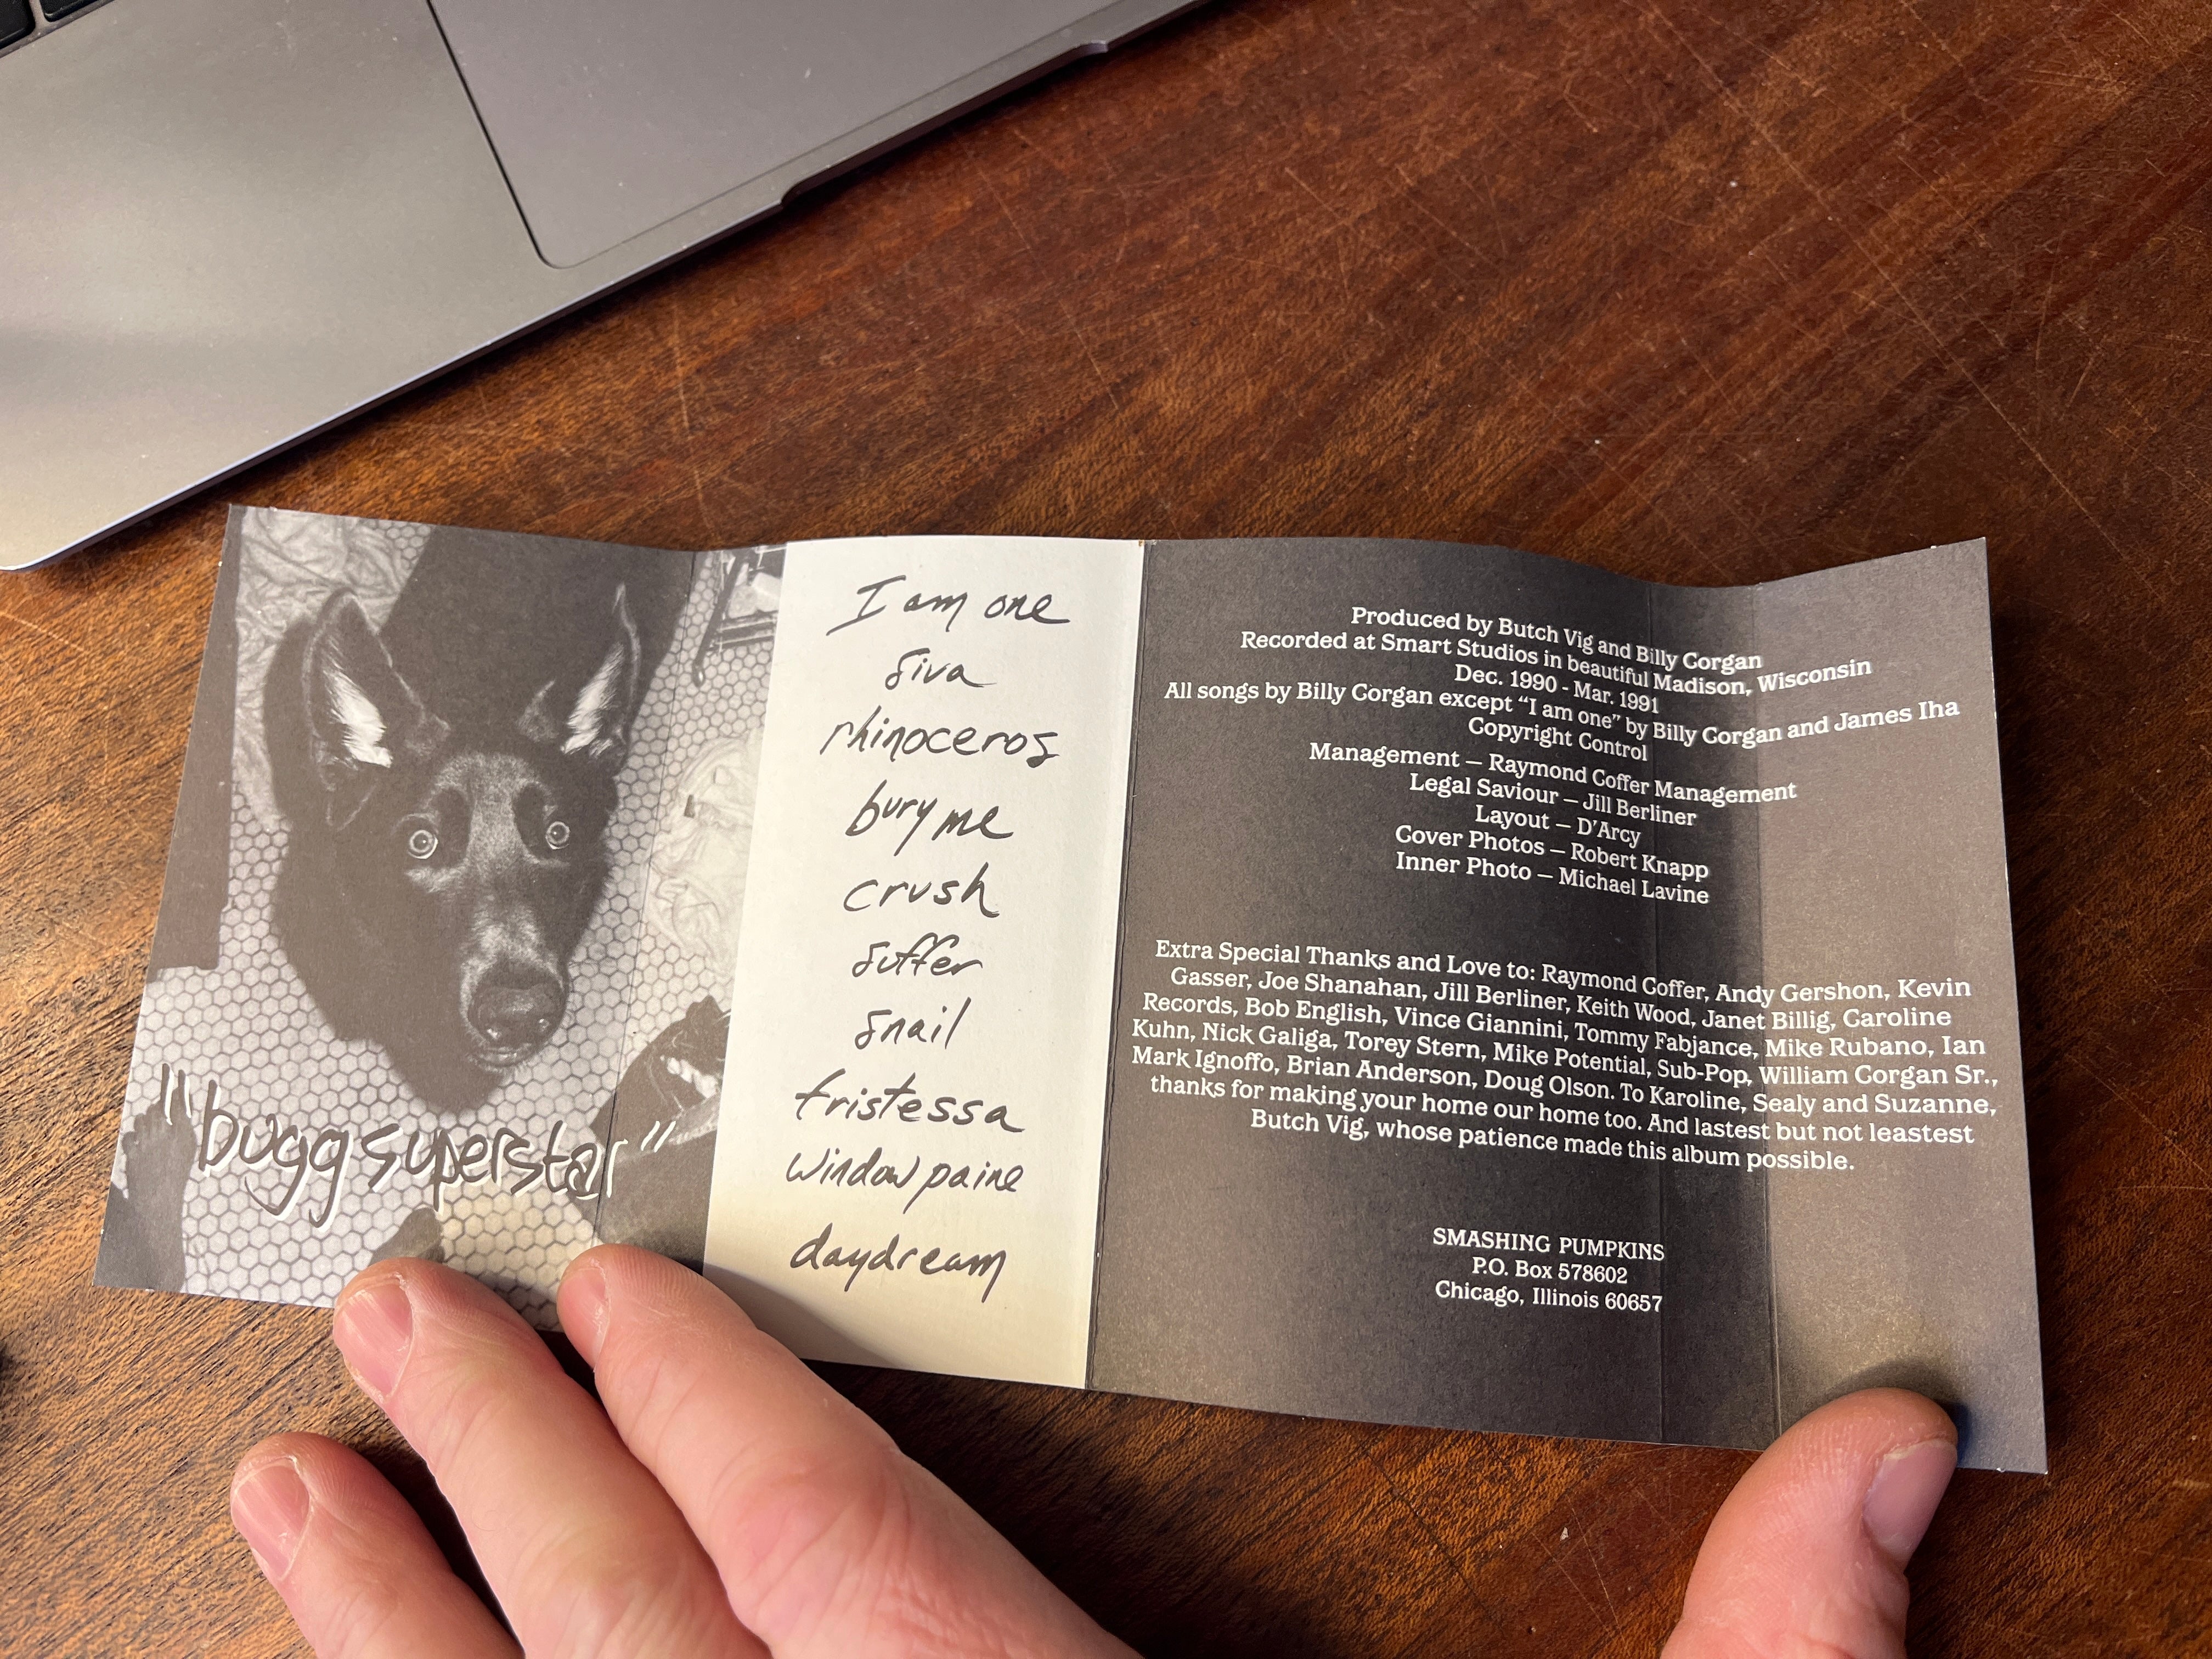 "bugg superstar"
I am one
siva
rhinoceros
bury me
crush
suffer
snail
tristessa
window paine
daydream
Produced by Butch Vig and Billy Corgan
Recorded at Smart Studios in beautiful Madison, Wisconsin
Dec. 1990 - Mar. 1991
All songs by Billy Corgan except "I am one" by Billy Corgan and James Iha
Copyright Control
Management — Raymond Coffer Management
Legal Saviour — Jill Berliner
Layout — D'Arcy
Cover Photos — Robert Knapp
Inner Photo — Michael Lavine
Extra Special Thanks and Love to: Raymond Coffer, Andy Gershon, Kevin
Gasser, Joe Shanahan, Jill Berliner, Keith Wood, Janet Billig, Caroline
Records, Bob English, Vince Giannini, Tommy Fabjance, Mike Rubano, Ian
Kuhn, Nick Galiga, Torey Stern, Mike Potential, Sub-Pop, William Corgan Sr.,
Mark Ignoffo, Brian Anderson, Doug Olson. To Karoline, Sealy and Suzanne,
thanks for making your home our home too. And lastest but not leastest
Butch Vig, whose patience made this album possible.
SMASHING PUMPKINS
P.O. Box 578602
Chicago, Illinois 60657